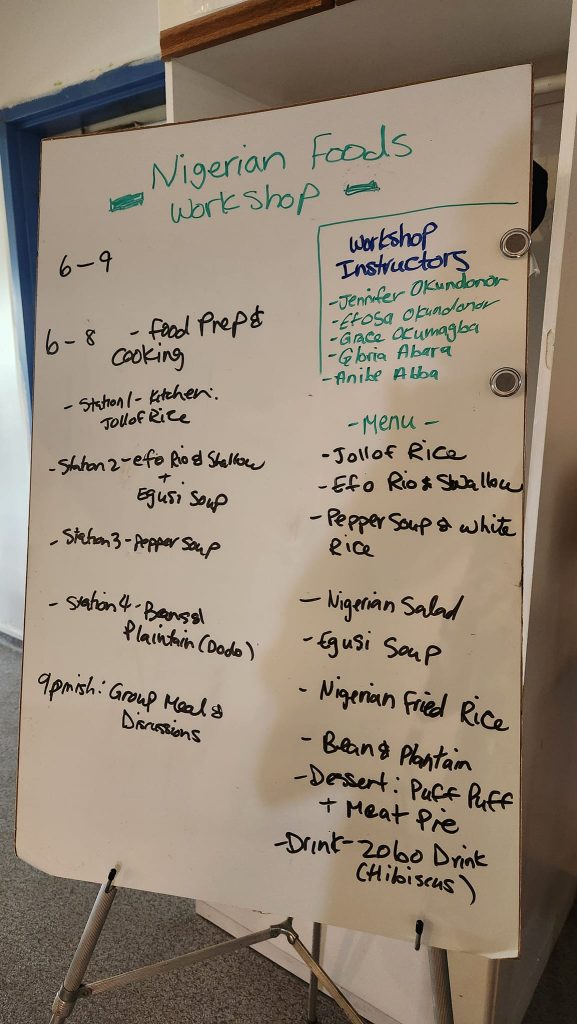 Nigerian Foods
Workshop
6-9
6-8 - Food Prep &
Cooking
- Station 1 - Kitchen:
Jollof Rice
- Station 2 - efo Rio & Swallow
+
Egusi Soup
- Station 3 - Pepper Soup
- Station 4 - Beans &
Plaintain (Dodo)
9pmish: Group Meal &
Discussions
Workshop
Instructors
- Jennifer Okundonor
- Efosa Okundonor
- Grace Okumagba
- Gloria Abara
- Anibe Abba
- Menu -
- Jollof Rice
- Efo Rio & Swallow
- Pepper Soup & White
Rice
- Nigerian Salad
- Egusi Soup
- Nigerian Fried Rice
- Bean & Plantain
- Dessert: Puff Puff
+ Meat Pie
- Drink - Zobo Drink
(Hibiscus)